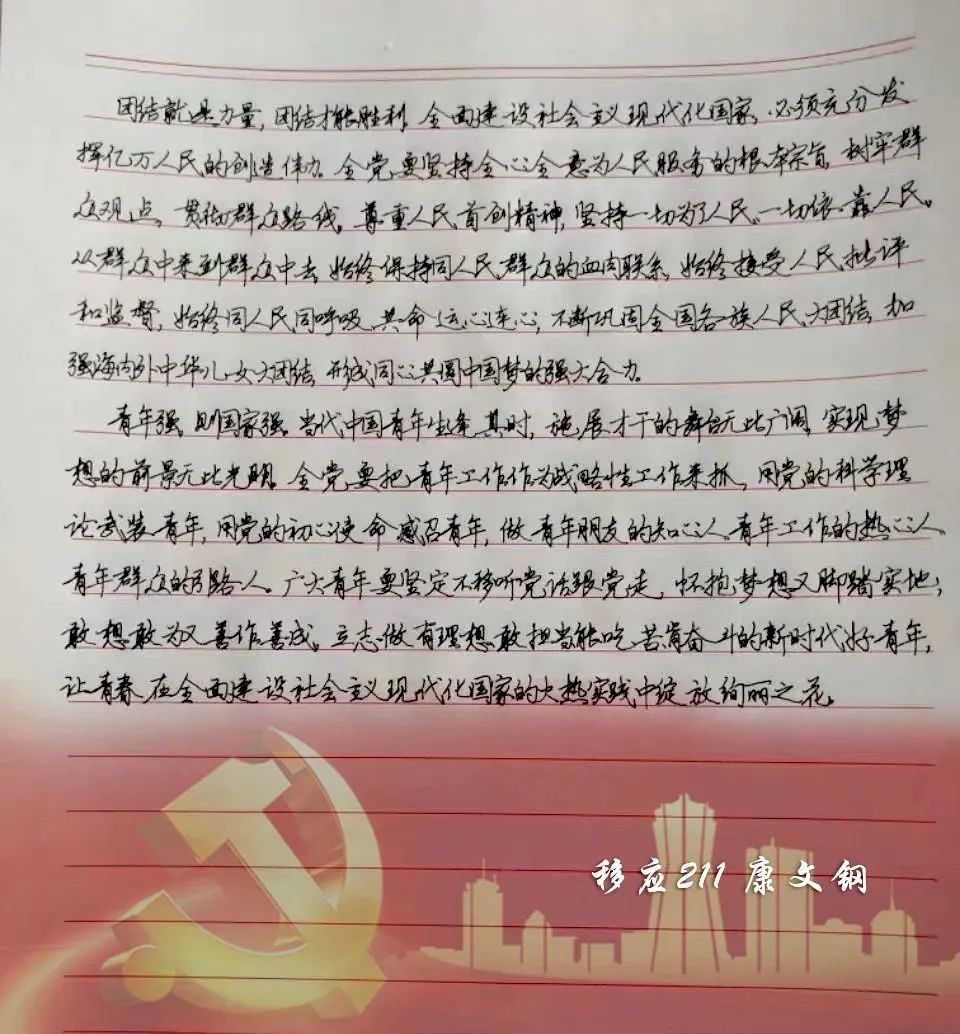 团结就是力量,团结才能胜利。全面建设社会主义现代化国家,必须充分发
挥亿万人民的创造伟力。全党要坚持全心全意为人民服务的根本宗旨,树牢群
众观点,贯彻群众路线,尊重人民首创精神,坚持一切为了人民、一切依靠人民,
从群众中来到群众中去,始终保持同人民群众的血肉联系,始终接受人民批评
和监督,始终同人民同呼吸、共命运、心连心,不断巩固全国各族人民大团结,加
强海内外中华儿女大团结,形成同心共圆中国梦的强大合力。
青年强,则国家强。当代中国青年生逢其时,施展才干的舞台无比广阔,实现梦
想的前景无比光明。全党要把青年工作作为战略性工作来抓,用党的科学理
论武装青年,用党的初心使命感召青年,做青年朋友的知心人、青年工作的热心人、
青年群众的引路人。广大青年要坚定不移听党话、跟党走,怀抱梦想又脚踏实地,
敢想敢为又善作善成,立志做有理想、敢担当、能吃苦、肯奋斗的新时代好青年,
让青春在全面建设社会主义现代化国家的火热实践中绽放绚丽之花。
移应211 康文钢